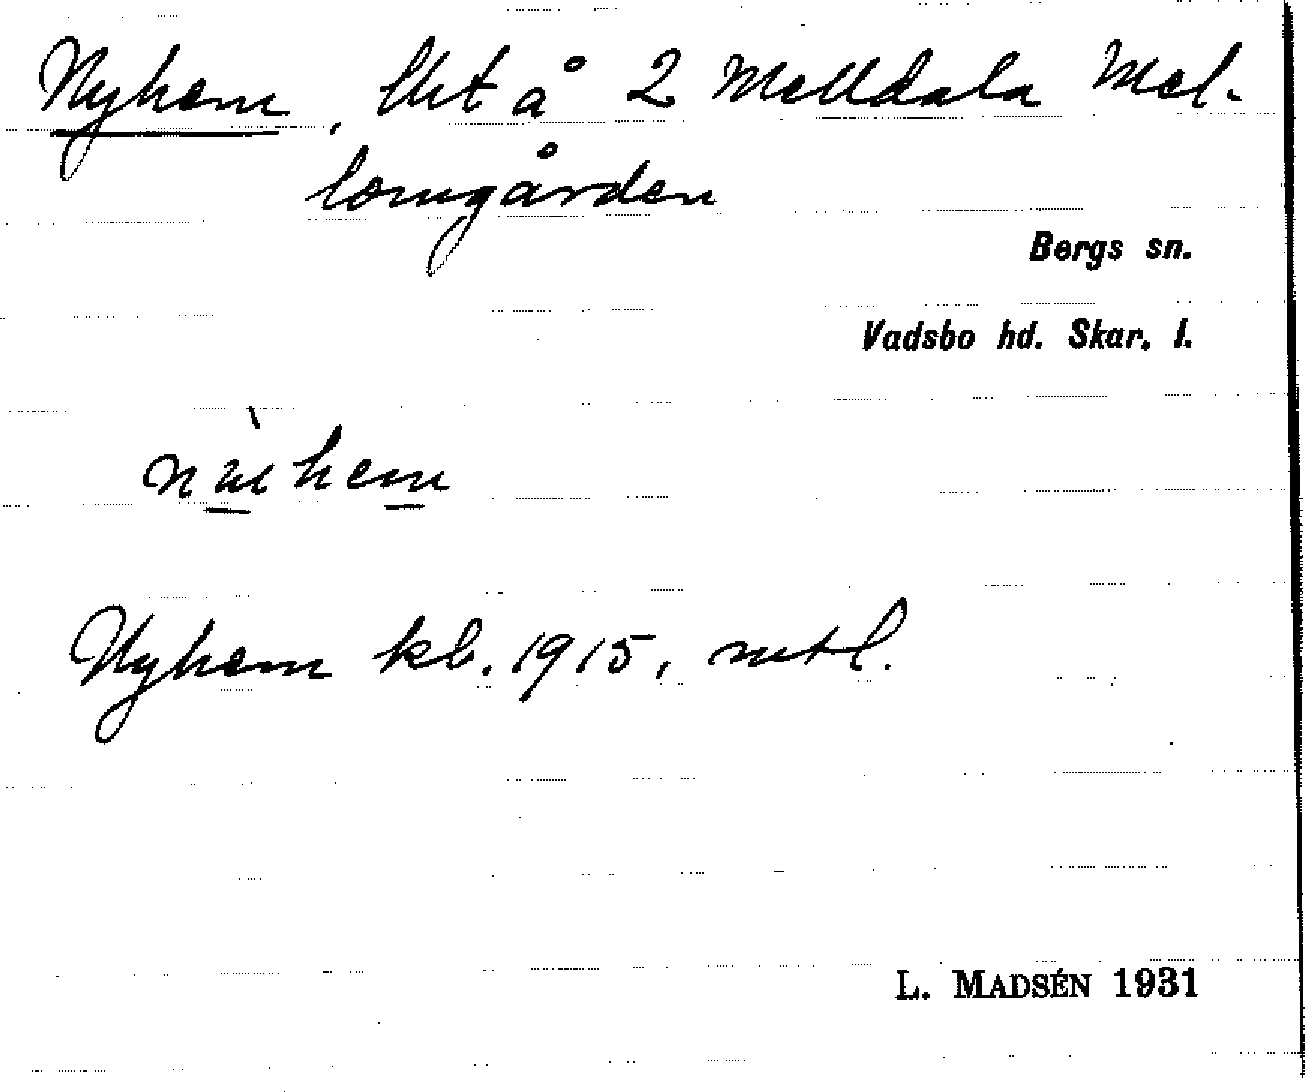 Nyhem, lht å 2 Melldala Mel-
lomgården
Bergs sn.
Vadsbo hd. Skar. l.
Nyhem kb. 1915, mtl.
L. MADSÉN 1931